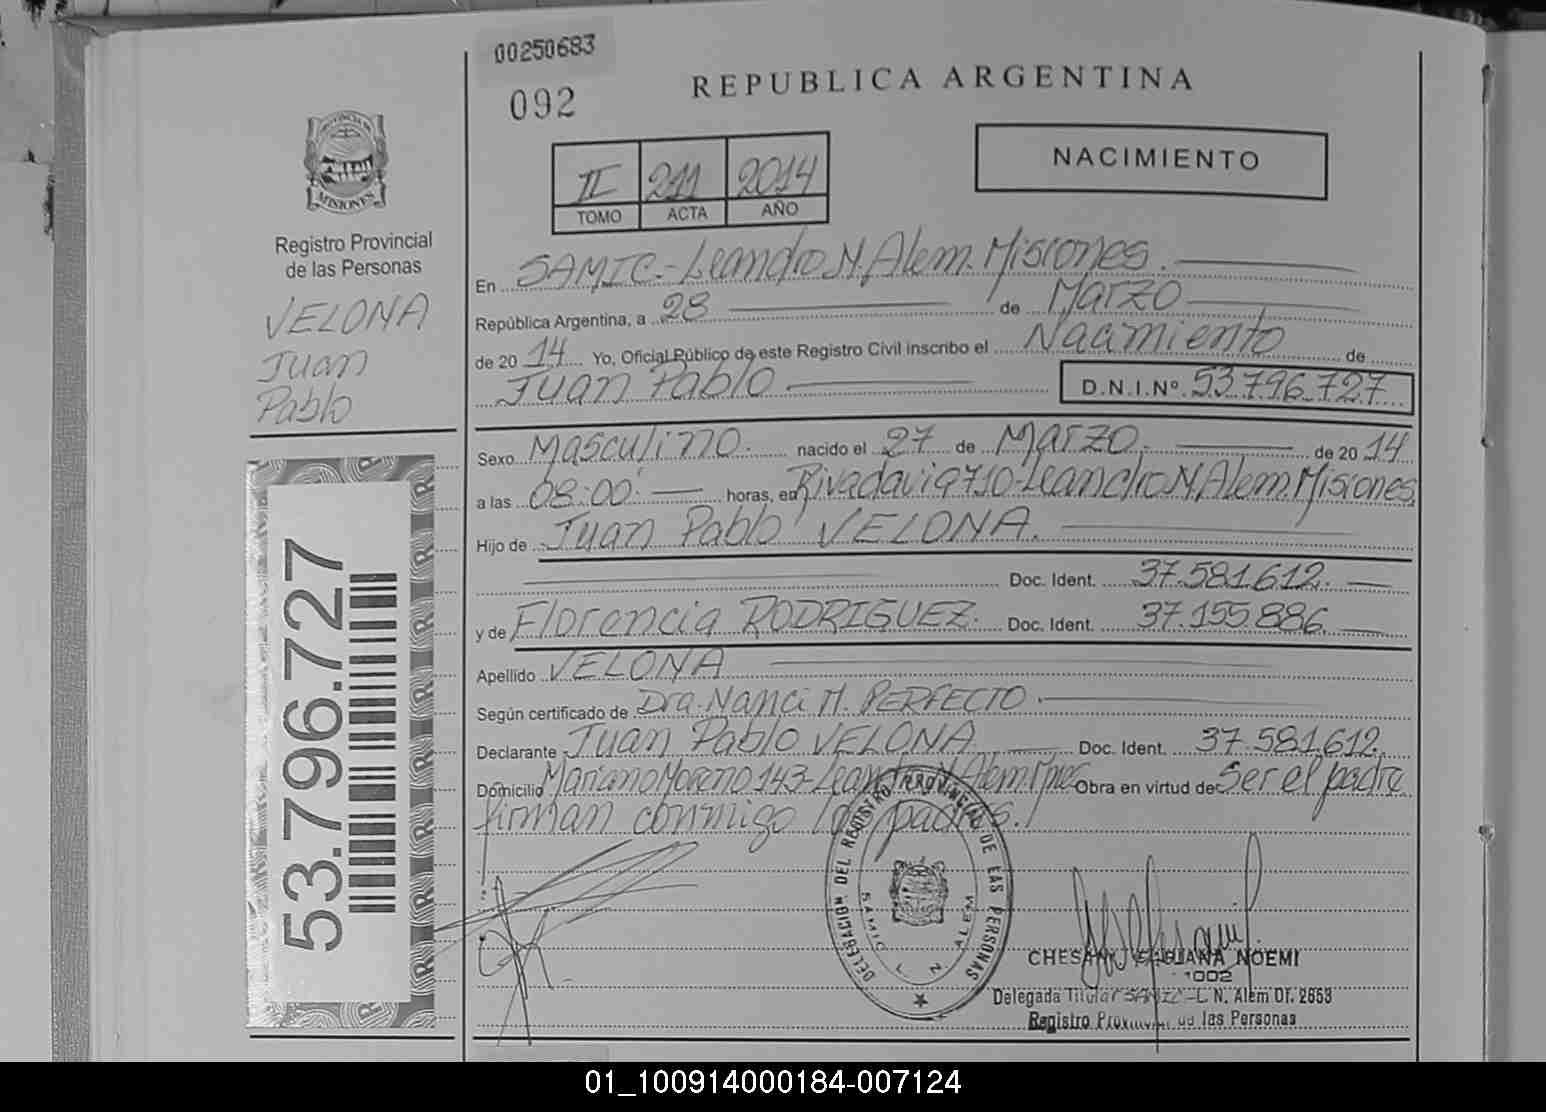 00250683
092
REPUBLICA ARGENTINA
PROVINCIA DE
MISIONES
II 211 2014
TOMO ACTA AÑO
NACIMIENTO
Registro Provincial
de las Personas
VELONA
Juan
Pablo
53.796.727
En SAMIC.- Leandro N. Alem. Misiones.
República Argentina, a 28 de Marzo
de 20 14 Yo, Oficial Público de este Registro Civil inscribo el Nacimiento de
Juan Pablo D.N.I.Nº 53.796.727
Sexo Masculino. nacido el 27 de Marzo. de 20 14
a las 08:00 horas, en Rivadavia 710-Leandro N. Alem. Misiones.
Hijo de Juan Pablo VELONA.
Doc. Ident. 37.581.612.
y de Florencia RODRIGUEZ. Doc. Ident. 37.155.886
Apellido VELONA
Según certificado de Dra. Nanci M. PERFECTO.
Declarante Juan Pablo VELONA Doc. Ident. 37.581.612.
Domicilio Mariano Moreno 143-Leandro N. Alem Mnes Obra en virtud de Ser el padre
firman conmigo los padres.
DELEGACION DEL REGISTRO PROVINCIAL DE LAS PERSONAS
SAMIC L N ALEM
FABIANA NOEMI
1002
Delegada Titular SAMIC-L. N. Alem Of. 2653
Registro Provincial de las Personas
01_100914000184-007124